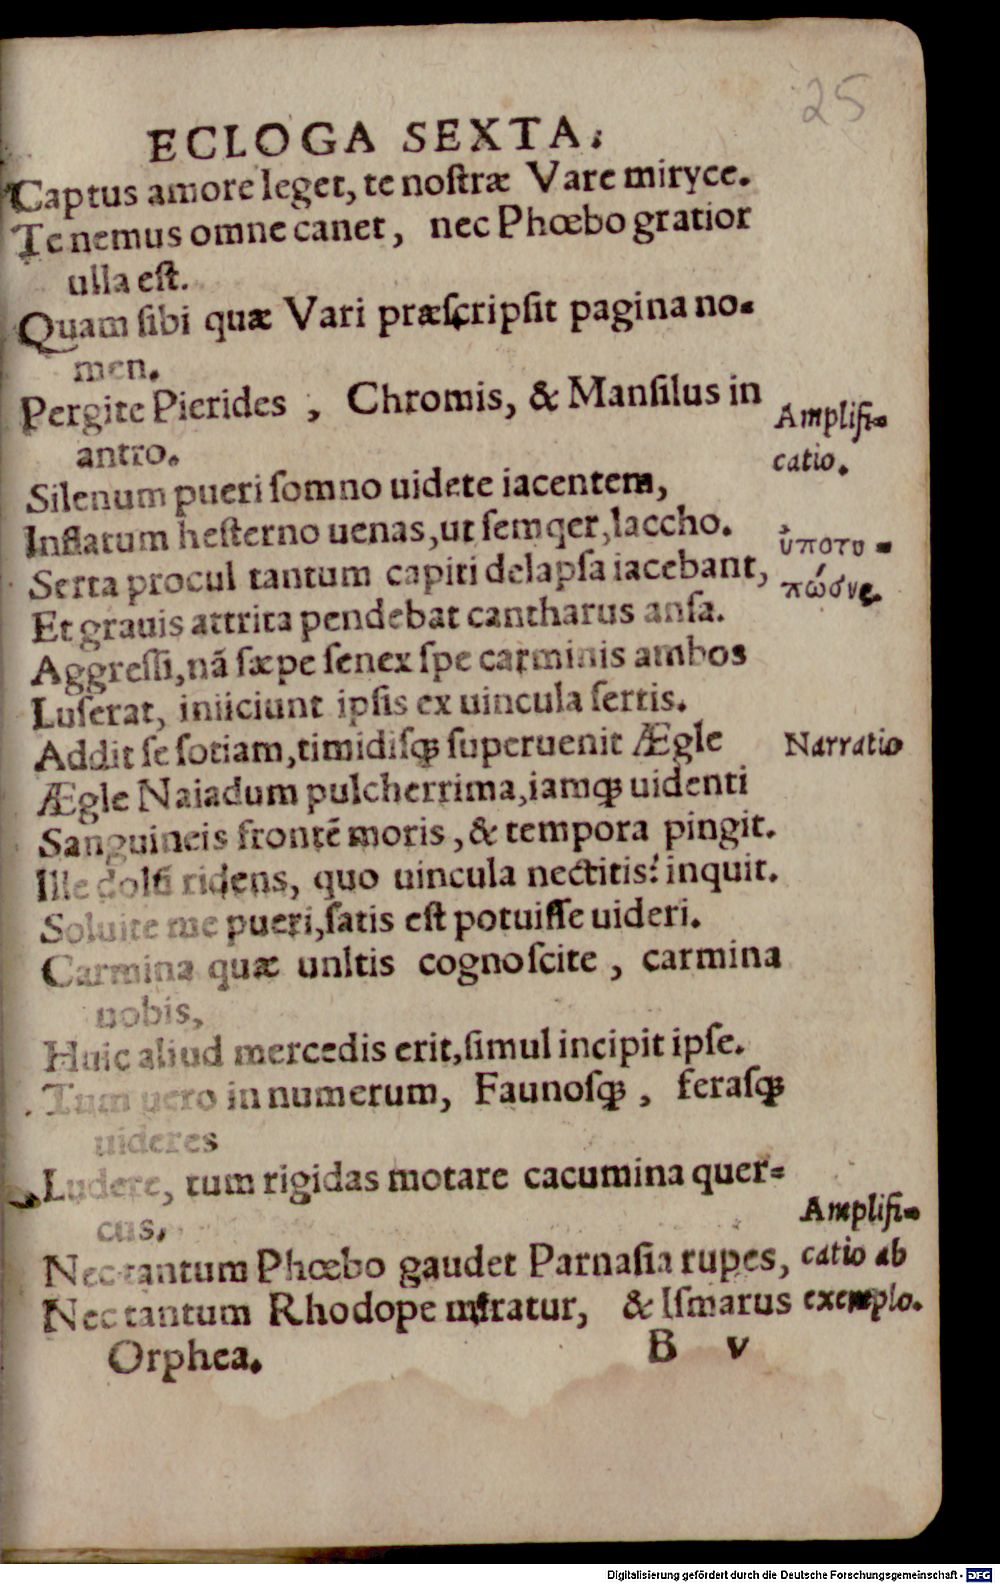 25
ECLOGA SEXTA.
Captus amore leget, te nostræ Vare miryce.
Te nemus omne canet, nec Phœbo gratior
ulla est.
Quam sibi quæ Vari præscripsit pagina no-
men.
Pergite Pierides, Chromis, & Mansilus in
antro.
Amplifi-
catio.
Silenum pueri somno uidete iacentem,
Inflatum hesterno uenas, ut semqer, Iaccho.
Serta procul tantum capiti delapsa iacebant,
ὑποτυ-
πώσις.
Et grauis attrita pendebat cantharus ansa.
Aggressi, nã sæpe senex spe carminis ambos
Luserat, iniiciunt ipsis ex uincula sertis.
Addit se sotiam, timidisq; superuenit Ægle
Narratio
Ægle Naiadum pulcherrima, iamq; uidenti
Sanguineis frontẽ moris, & tempora pingit.
Ille dolũ ridens, quo uincula nectitis? inquit.
Soluite me pueri, satis est potuisse uideri.
Carmina quæ unltis cognoscite, carmina
nobis,
Huic aliud mercedis erit, simul incipit ipse.
Tum uero in numerum, Faunosq;, ferasq;
uideres
Ludere, tum rigidas motare cacumina quer-
cus.
Nec tantum Phœbo gaudet Parnasia rupes,
Nec tantum Rhodope miratur, & Ismarus
Orphea.
Amplifi-
catio ab
exemplo.
B v
Digitalisierung gefördert durch die Deutsche Forschungsgemeinschaft - DFG